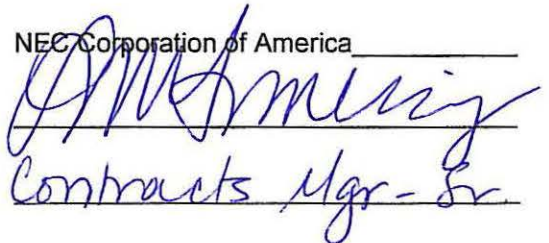 NEC Corporation of America
Contracts Mgr-Sr.